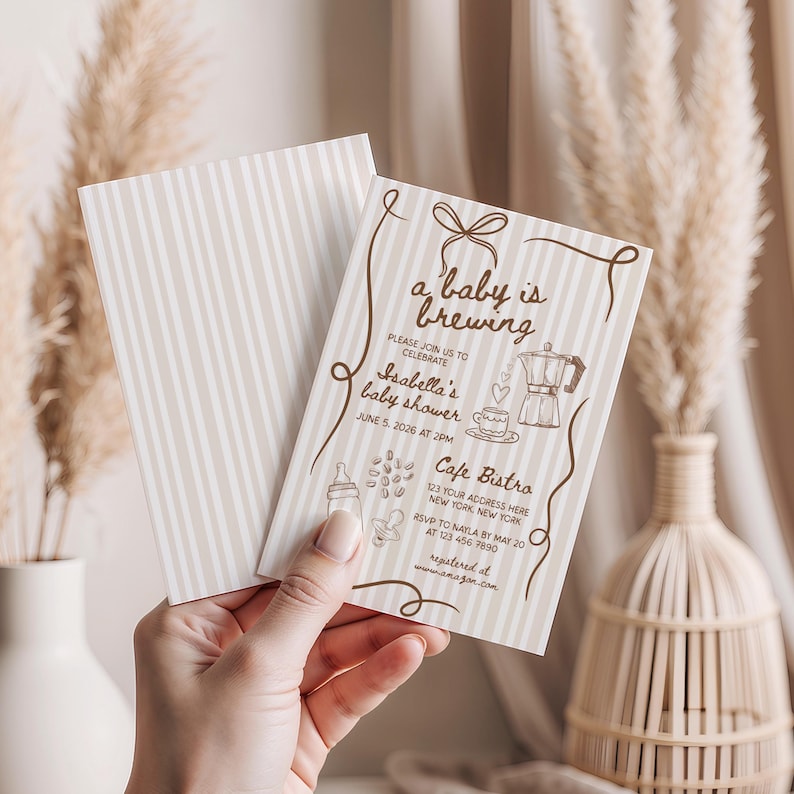 a baby is
brewing
PLEASE JOIN US TO
CELEBRATE
Isabella's
baby shower
JUNE 5, 2026 AT 2PM
Cafe Bistro
123 YOUR ADDRESS HERE
NEW YORK, NEW YORK
RSVP TO NAYLA BY MAY 20
AT 123 456 7890
registered at
www.amazon.com